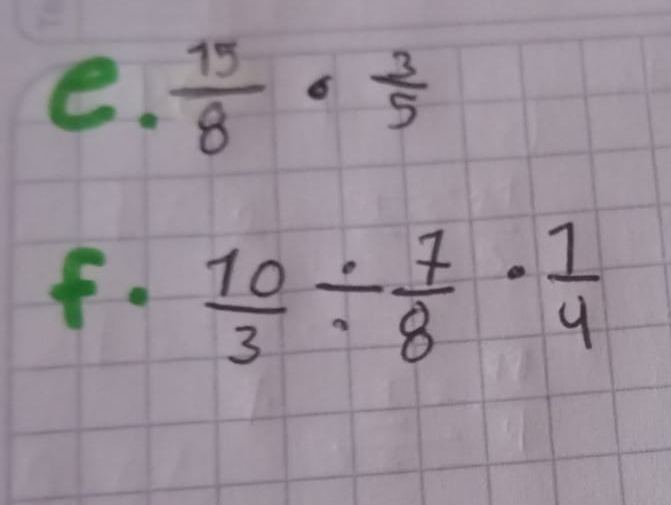 e. 15/8 · 3/5
f. 10/3 ÷ 7/8 · 1/4